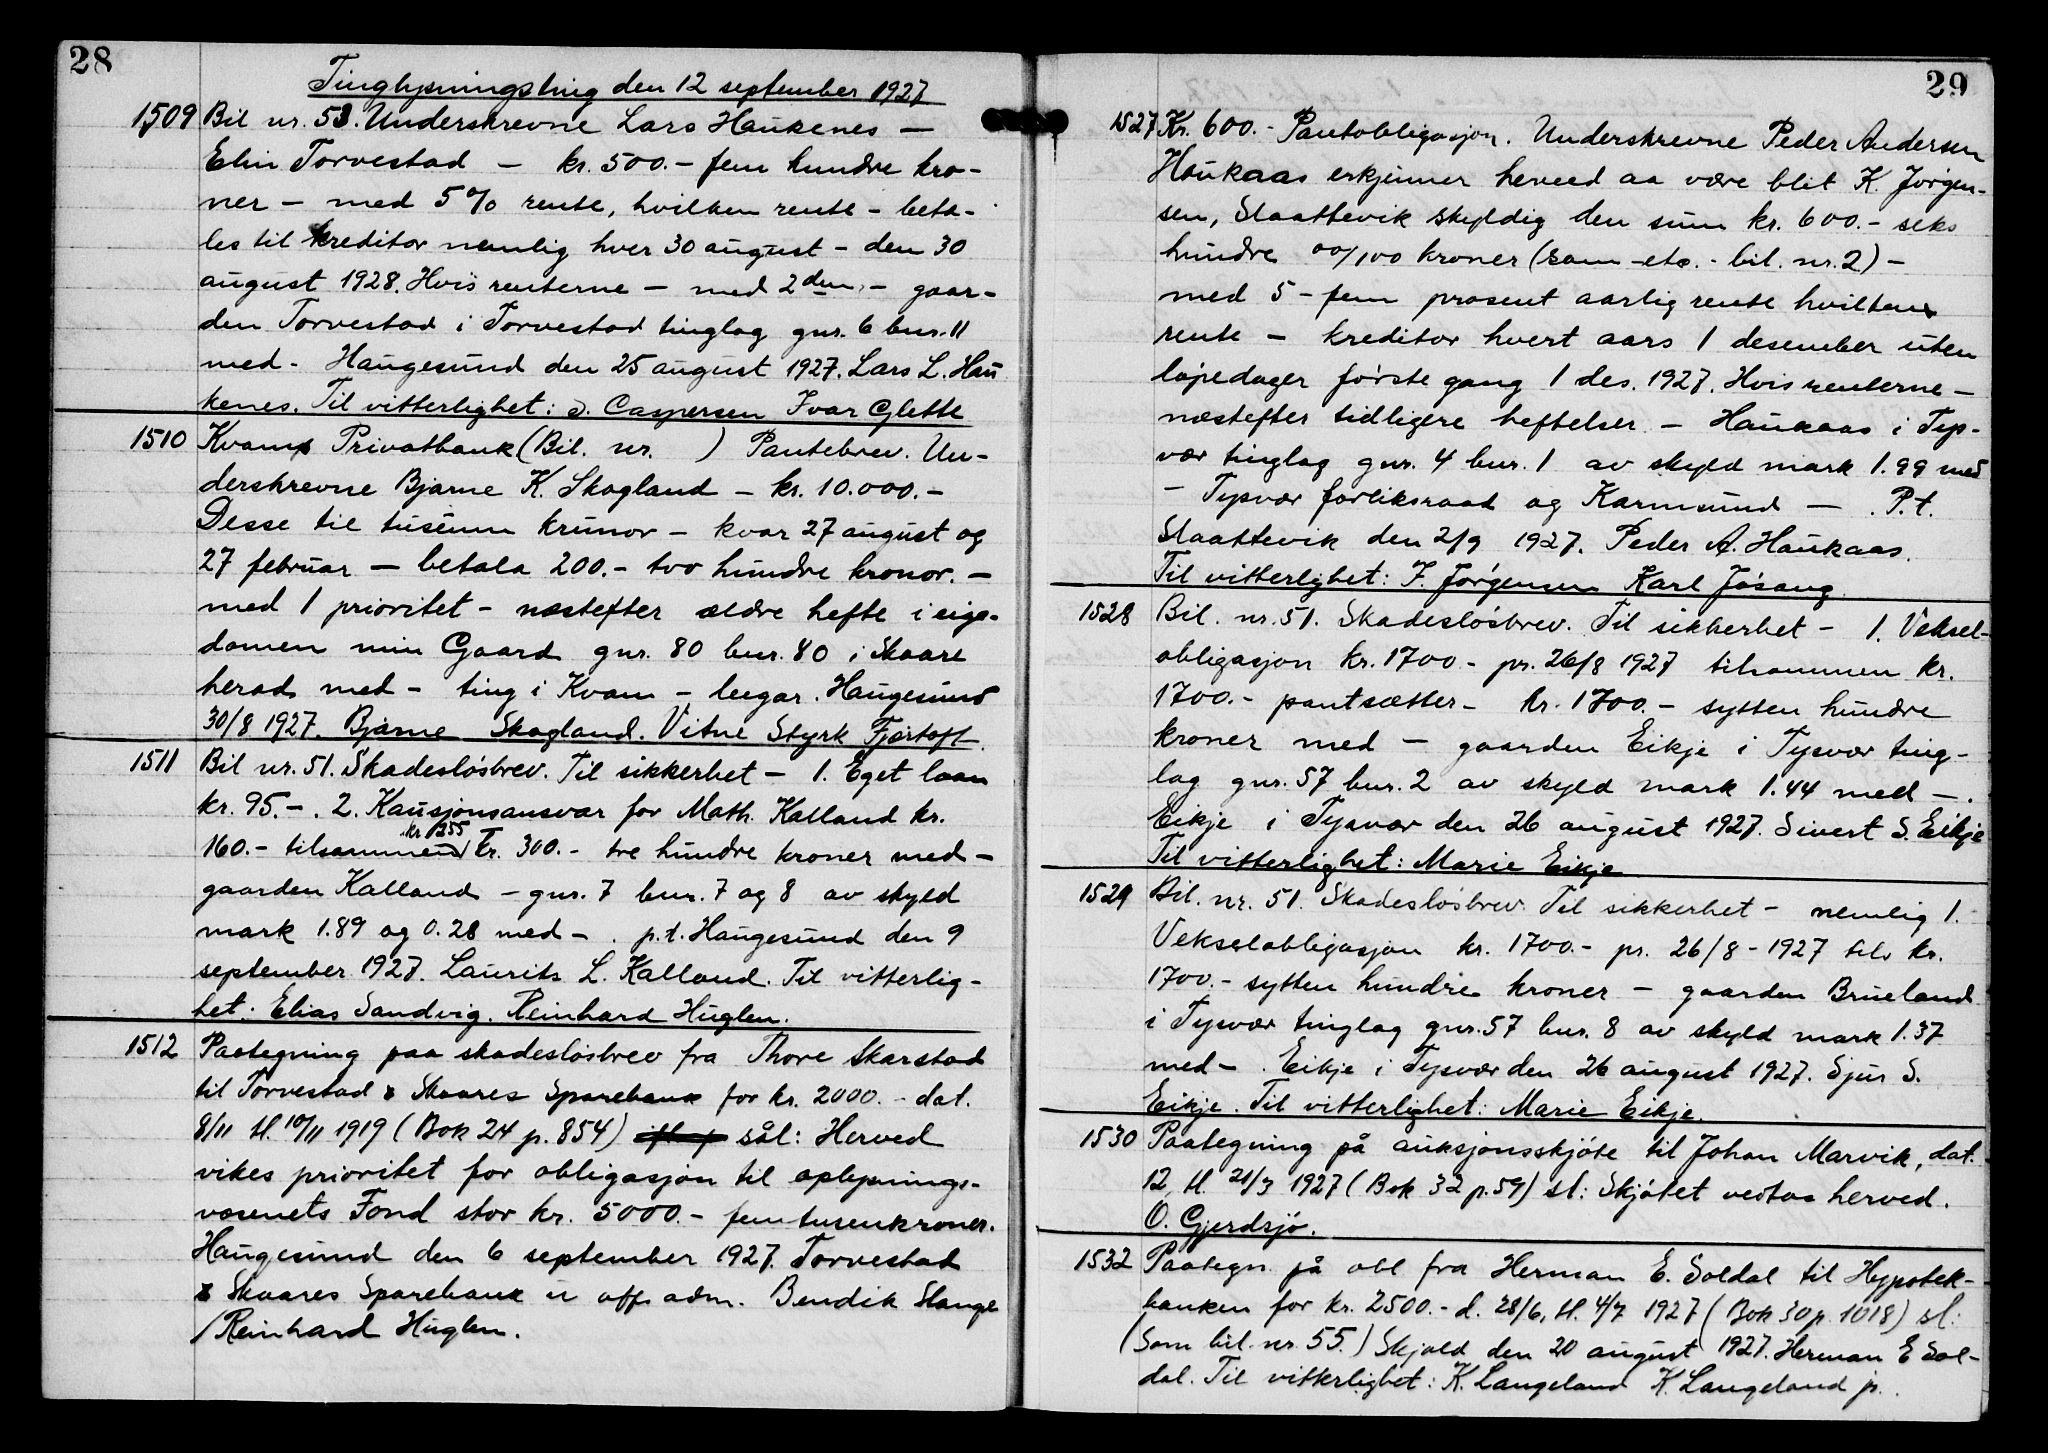 28
Tinglysningsting den 12 september 1927
1509 Bil nr. 53. Underskrevne Lars Haukenes —
Elin Torvestad — kr. 500.- fem hundre kro-
ner — med 5% rente, hvilken rente - beta-
les til kreditor nemlig hver 30 august - den 30
august 1928. Hvis renterne — med 2den - gaar-
den Torvestad i Torvestad tinglag gnr. 6 bnr. 11
med - Haugesund den 25 august 1927. Lars L. Hau
kenes. Til vitterlighet: S. Caspersen Ivar Glette
1510 Kvams Privatbank (Bil. nr. ) Pantebrev. Un-
derskrevne Bjarne K. Skogland - kr. 10.000.-
Desse tie tusunn krunor - kvar 27 august og
27 februar — betala 200.- tvo hundre kronor. -
med 1 prioritet - næstefter ældre hefte i eige-
domen min Gaard gnr. 80 bnr. 80 i Skaare
herad med - ting i Kvam - leegar. Haugesund
30/8 1927. Bjarne Skogland. Vitne Styrk Fjærtoft.
1511 Bil nr. 51. Skadesløsbrev. Til sikkerhet - 1. Eget laan
kr. 95.-. 2. Kausjonsansvar for Math. Kalland kr.
160.- tilsammen kr. 255 Kr. 300.- tre hundre kroner med -
gaarden Kalland - gnr. 7 bnr. 7 og 8 av skyld
mark 1.89 og 0.28 med - . p.t. Haugesund den 9
september 1927. Laurits L. Kalland. Til vitterlig-
het: Elias Sandvig. Reinhard Huglen.
1512 Paategning paa skadesløsbrev fra Thore Skarstad
til Torvestad & Skaares Sparebank for kr. 2000. - dat.
8/11 tl. 10/11 1919 (Bok 24 p. 854) sål: Herved
vikes prioritet for obligasjon til oplysnings-
vesenets Fond stor kr. 5000.- femtusenkroner.
Haugesund den 6 september 1927. Torvestad
& Skaares Sparebank u. off. adm. Bendik Stange
/Reinhard Huglen.
29
1527 Kr. 600.- Pantobligasjon. Underskrevne Peder Andersen
Haukaas erkjenner herved aa være blit K. Jørgen-
sen, Slaattevik skyldig den sum kr. 600.- seks
hundre 00/100 kroner (som etc. - bil. nr. 2) -
med 5 - fem prosent aarlig rente hvilken
rente — kreditor hvert aars 1 desember uten
løpedager første gang 1 des. 1927. Hvis renterne -
næstefter tidligere heftelser - Haukaas i Tys-
vær tinglag gnr. 4 bnr. 1 av skyld mark 1.99 med
- Tysvær forliksraad og Karmsund — . P.t.
Slaattevik den 2/9 1927. Peder A. Haukaas.
Til vitterlighet: F. Jørgensen Karl Jøsang.
1528 Bil. nr. 51. Skadesløsbrev. Til sikkerhet - 1. Veksel-
obligasjon kr. 1700.- pr. 26/8 1927 tilsammen kr.
1700.- pantsætter - kr. 1700.- sytten hundre
kroner med - gaarden Eikje i Tysvær ting-
lag gnr. 57 bnr. 2 av skyld mark 1.44 med -.
Eikje i Tysvær den 26 august 1927. Sivert S. Eikje
Til vitterlighet: Marie Eikje
1529 Bil. nr. 51. Skadesløsbrev. Til sikkerhet - nemlig 1.
Vekselobligasjon kr. 1700.- pr. 26/8 - 1927 tils kr.
1700.- sytten hundre kroner - gaarden Brueland
i Tysvær tinglag gnr. 57 bnr. 8 av skyld mark 1.37
med - . Eikje i Tysvær den 26 august 1927. Sjur S.
Eikje. Til vitterlighet: Marie Eikje.
1530 Paategning på auksjonsskjøte til Johan Marvik, dat.
12, tl. 21/3 1927 (Bok 32 p. 59) sl: Skjøtet vedtas herved.
O. Gjerdsjø.
1532 Paategn. på obl fra Herman E. Soldal til Hypotek-
banken for kr. 2500.- d. 28/6, tl. 4/7 1927 (Bok 30 p. 1018) sl:
(Som bil. nr. 55.) Skjold den 20 august 1927. Herman E Sol-
dal. Til vitterlighet: K. Langeland K. Langeland jr.